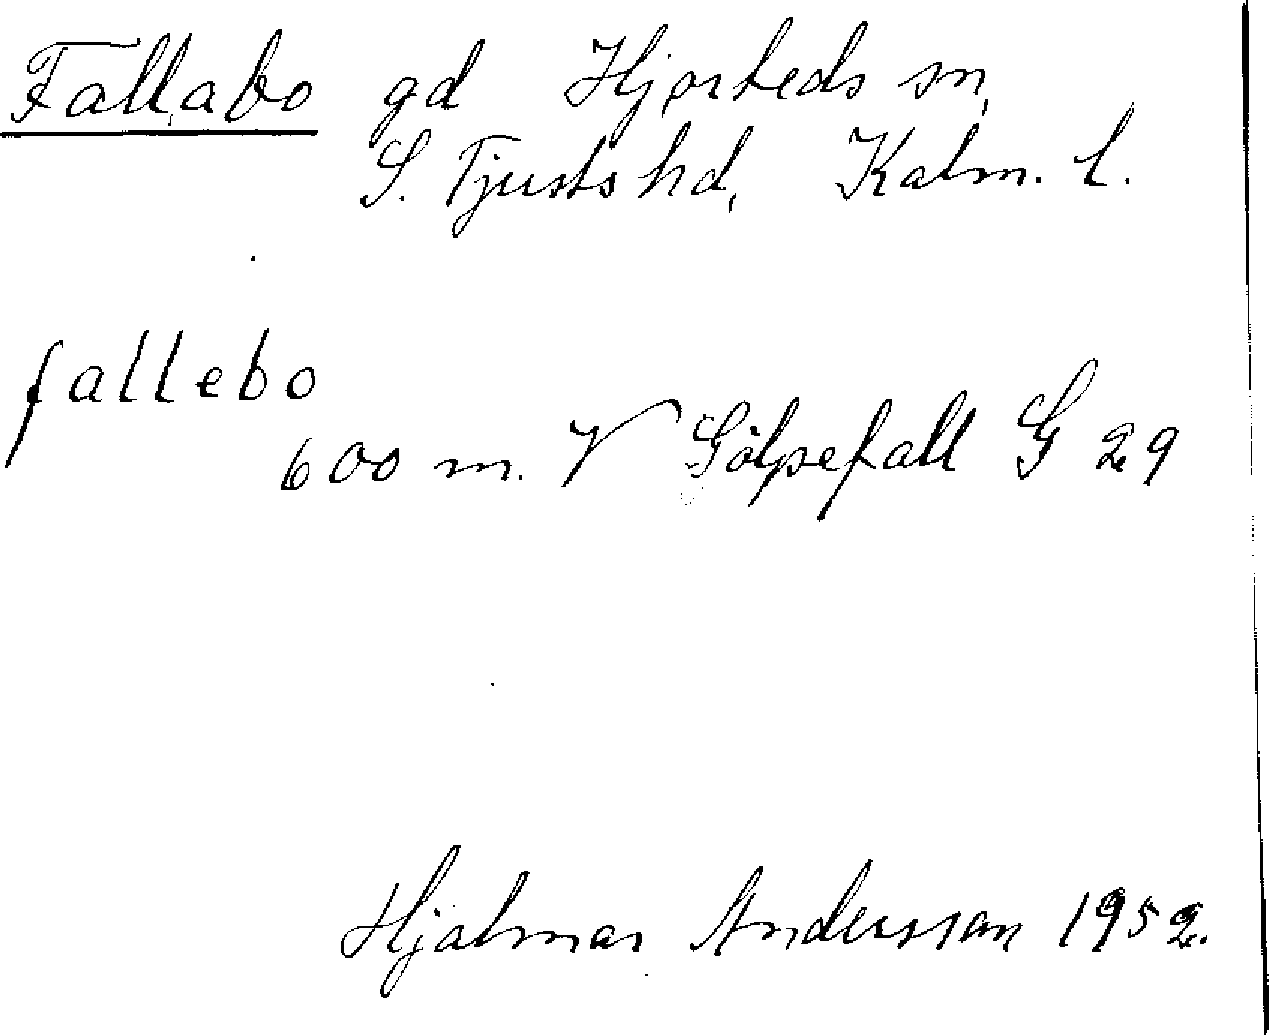 Fallabo gd Hjorteds sn,
S. Tjusts hd, Kalm. l.
fallebo
600 m. V Gölpefall G 29
Hjalmar Andersson 1952.